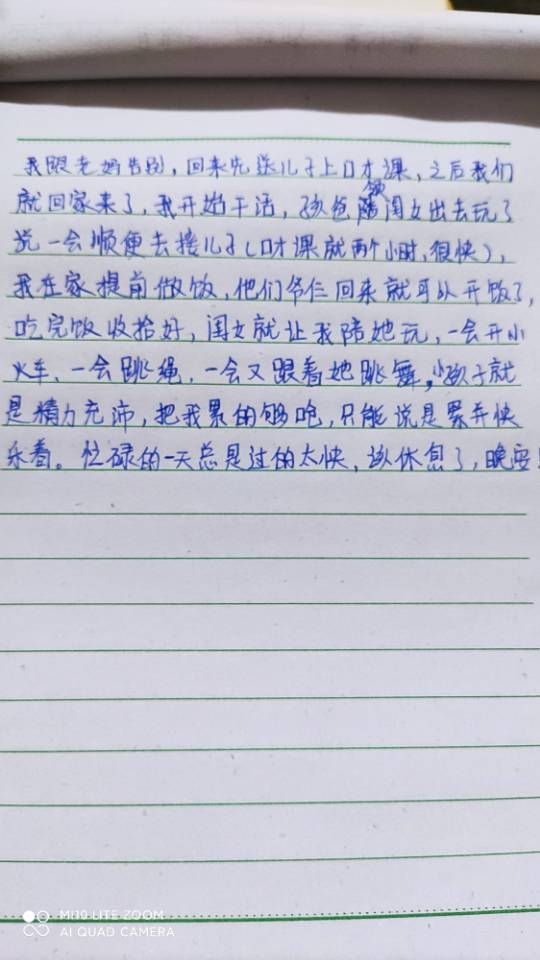 我跟老妈告别，回来先送儿子上口才课，之后我们
就回家来了，我开始干活，孩爸领闺女出去玩了
说一会顺便去接儿子（口才课就两个小时，很快），
我在家提前做饭，他们爷仨回来就可以开饭了，
吃完饭收拾好，闺女就让我陪她玩，一会开小
火车、一会跳绳、一会又跟着她跳舞，小孩子就
是精力充沛，把我累的够呛，只能说是累并快
乐着。忙碌的一天总是过的太快，该休息了，晚安！
MI 10 LITE ZOOM
AI QUAD CAMERA